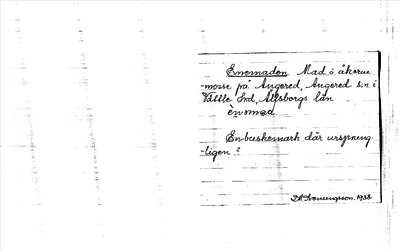 Enemaden Mad ö åkerne
-mosse på Angered, Angered s:n i
Vättle hrd, Älfsborgs län
Enbuskemark där ursprung-
-ligen?
1938